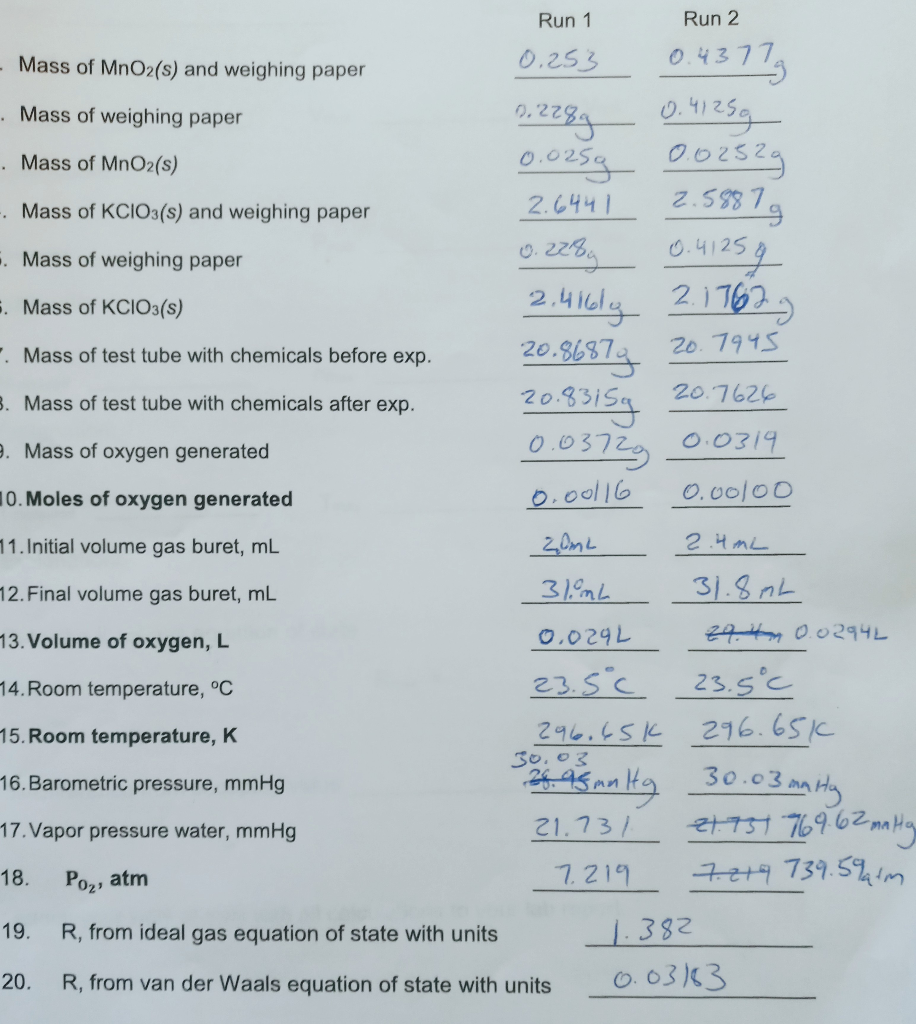 Run 1 Run 2
. Mass of MnO2(s) and weighing paper 0.253 0.4377g
. Mass of weighing paper 0.228g 0.4125g
. Mass of MnO2(s) 0.025g 0.0252g
. Mass of KClO3(s) and weighing paper 2.6441 2.5887g
5. Mass of weighing paper 0.228g 0.4125g
6. Mass of KClO3(s) 2.4161g 2.1762g
7. Mass of test tube with chemicals before exp. 20.8687g 20.7945
8. Mass of test tube with chemicals after exp. 20.8315g 20.7626
9. Mass of oxygen generated 0.0372g 0.0319
10. Moles of oxygen generated 0.00116 0.00100
11. Initial volume gas buret, mL 2.0mL 2.4mL
12. Final volume gas buret, mL 31.0mL 31.8mL
13. Volume of oxygen, L 0.029L 29.4m 0.0294L
14. Room temperature, ºC 23.5°C 23.5°C
15. Room temperature, K 296.65K 296.65K
30.03
16. Barometric pressure, mmHg 28.95mmHg 30.03mmHg
17. Vapor pressure water, mmHg 21.731 21.731 769.62mmHg
18. PO2, atm 7.219 7.219 739.59atm
19. R, from ideal gas equation of state with units 1.382
20. R, from van der Waals equation of state with units 0.03183